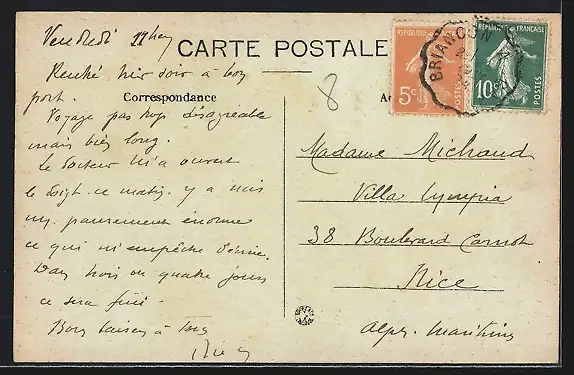 Vendredi 11 hey
CARTE POSTALE
Rentré hier soir à bon
port.
Correspondance
Voyage pas trop désagréable
mais bien long.
Le docteur m'a ouvert
le doigt ce matin. y a mis
un pansement énorme
ce qui m'empêche d'écrire.
Dans trois ou quatre jours
ce sera fini.
Bons baisers à tous
8
REPUBLIQUE FRANÇAISE
5c
POSTES
BRIANÇON
REPUBLIQUE FRANÇAISE
10c
POSTES
Madame Michaud
Villa Lympia
38 Boulevard Carnot
Nice
Alpes-Maritimes